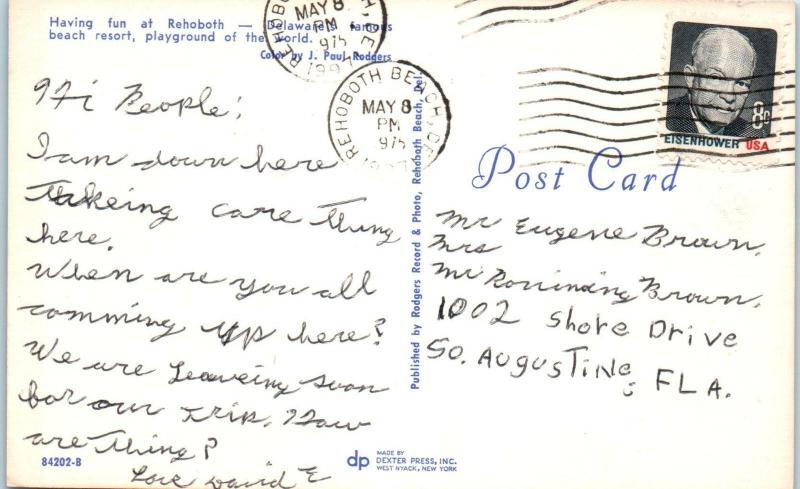 Having fun at Rehoboth — Delaware's famous
beach resort, playground of the world.
Color by J. Paul Rodgers
REHOBOTH BEACH, DEL.
MAY 8
PM
1975
REHOBOTH BEACH, DEL.
MAY 8
PM
1975
EISENHOWER USA
8c
Post Card
Hi People!
I am down here
Takeing care thing
here.
When are you all
comming up here?
We are Leaveing soon
for our trip. How
are thing?
Love David E
Mr Eugene Brown,
Mrs
Mr Brown,
1002 Shore Drive
So. AugusTiNe, FLA.
Published by Rodgers Record & Photo, Rehoboth Beach, Del.
84202-B
dp
MADE BY
DEXTER PRESS, INC.
WEST NYACK, NEW YORK